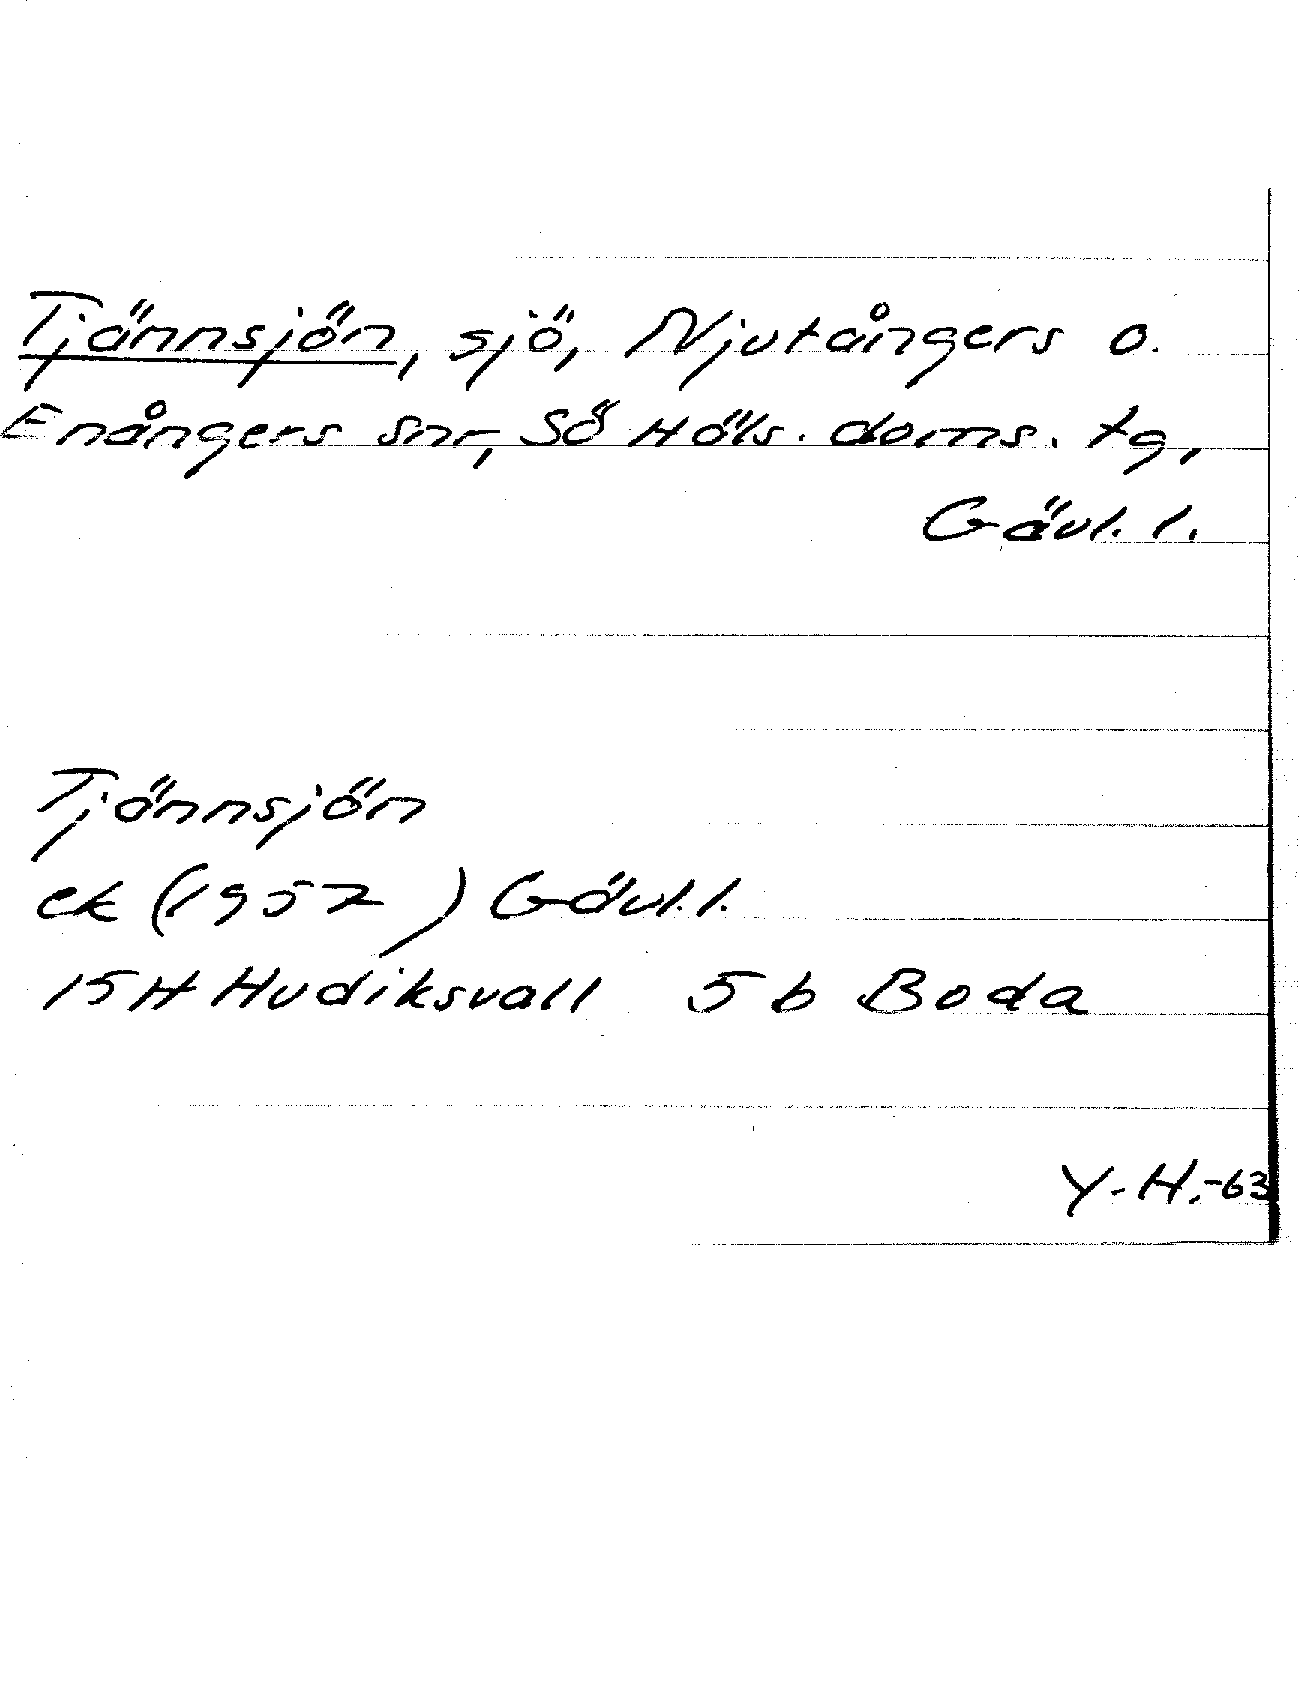 Tjännsjön, sjö, Njutångers o.
Enångers snr, Sö Häls. doms. tg,
Gävl. l.
Tjännsjön
ek (1952) Gävl. l.
15H Hudiksvall 5 b Boda
Y. H. -63